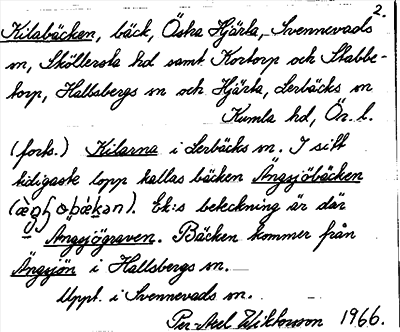 2.
Kilabäcken, bäck, Östra Hjärta, Svennevads
sn, Sköllersta hd samt Kortorp och Skabbe-
torp, Hallsbergs sn och Hjärta, Lerbäcks sn
Kumla hd, Ör. l.
(forts.) Kilarna i Lerbäcks sn. I sitt
tidigaste lopp kallas bäcken Ängsjöbäcken
Ek:s beteckning är där
Ängsjögraven. Bäcken kommer från
Ängsjön i Hallsbergs sn.
Uppt. i Svennevads sn.
Per-Axel Wiktorsson 1966.